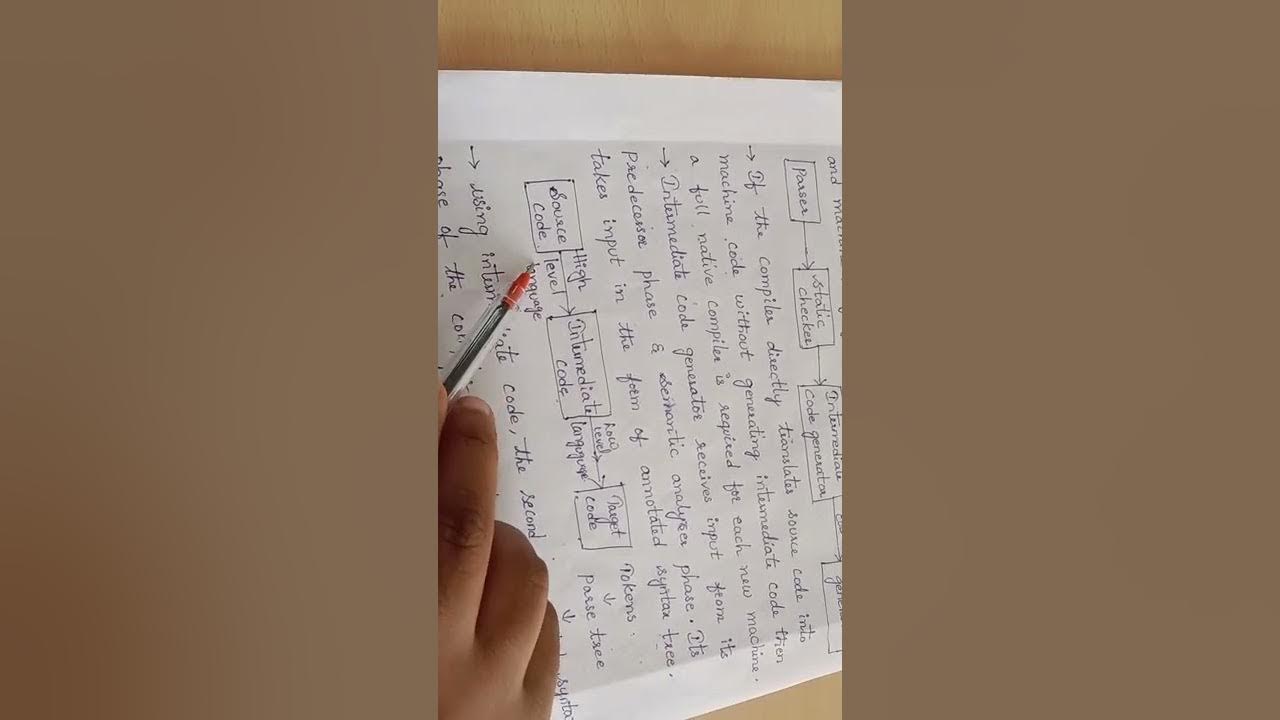 and machin
Parser → static checker → Intermediate code generator → gene
→ If the compiler directly translates source code into
machine code without generating intermediate code then
a full native compiler is required for each new machine.
→ Intermediate code generator receives input from its
Predecessor phase & semantic analyser phase. Its
takes input in the form of annotated syntax tree.
Source code High level language → Intermediate code Low level language → Target code
Tokens
↓
Parse tree
↓
synta
→ using inter ate code, the second
phase of the co